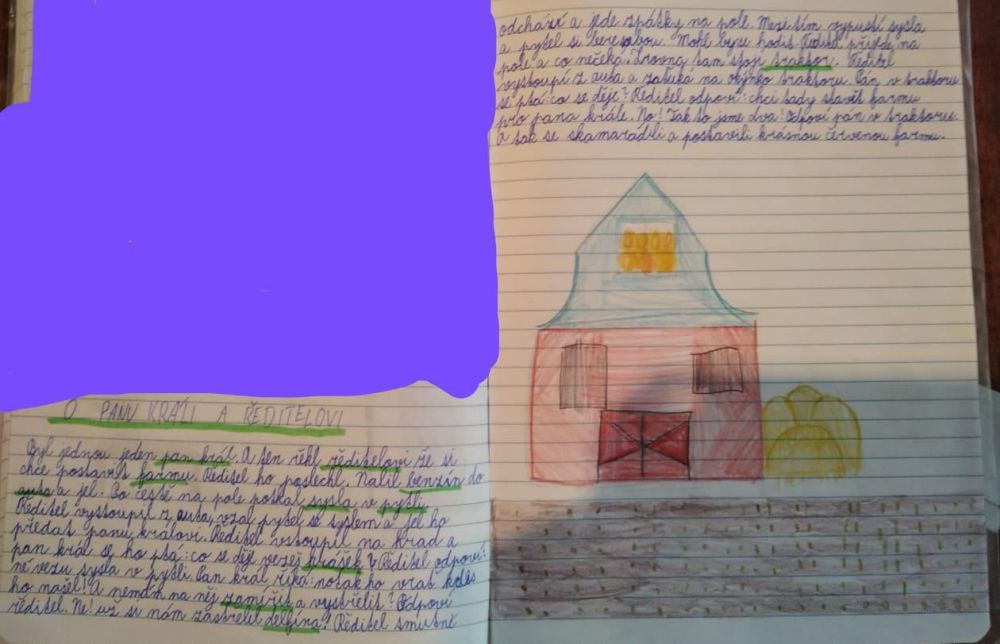 O PANU KRÁLI A ŘEDITELOVI
Byl jednou jeden pan král. A ten řekl řediteloviže si
chce postavit farmu. Ředitel ho poslechl. Nalil benzín do
auta a jel. Po cestě na pole potkal sysla v pytli.
Ředitel vystoupil z auta, vzal pytel se syslem a jel ho
předat panu královi. Ředitel vstoupil na hrad a
pan král se ho ptá: co se děje vezeš hrášek? Ředitel odpoví:
ne vezu sysla v pytli. Pan král říká: no tak ho vrať kdes
ho našel! A nemám na něj zamířit a vystřelit? Odpoví
ředitel. Ne! už si nám zastřelil delfína! Ředitel smutně
odchází a jede zpátky na pole. Mezitím vypustí sysla
a pytel si bere sebou. Mohl by se hodit. Ředitel přijede na
pole a co nečeká. Zrovna tam stojí traktor. Ředitel
vystoupí z auta a zaťuká na okýnko traktoru. Pán v traktoru
se ptá: co se děje? Ředitel odpoví: chci tady stavět farmu
pro pana krále. No! Tak to jsme dva! Odpoví pán v traktoru.
A tak se skamarádili a postavili krásnou červenou farmu.